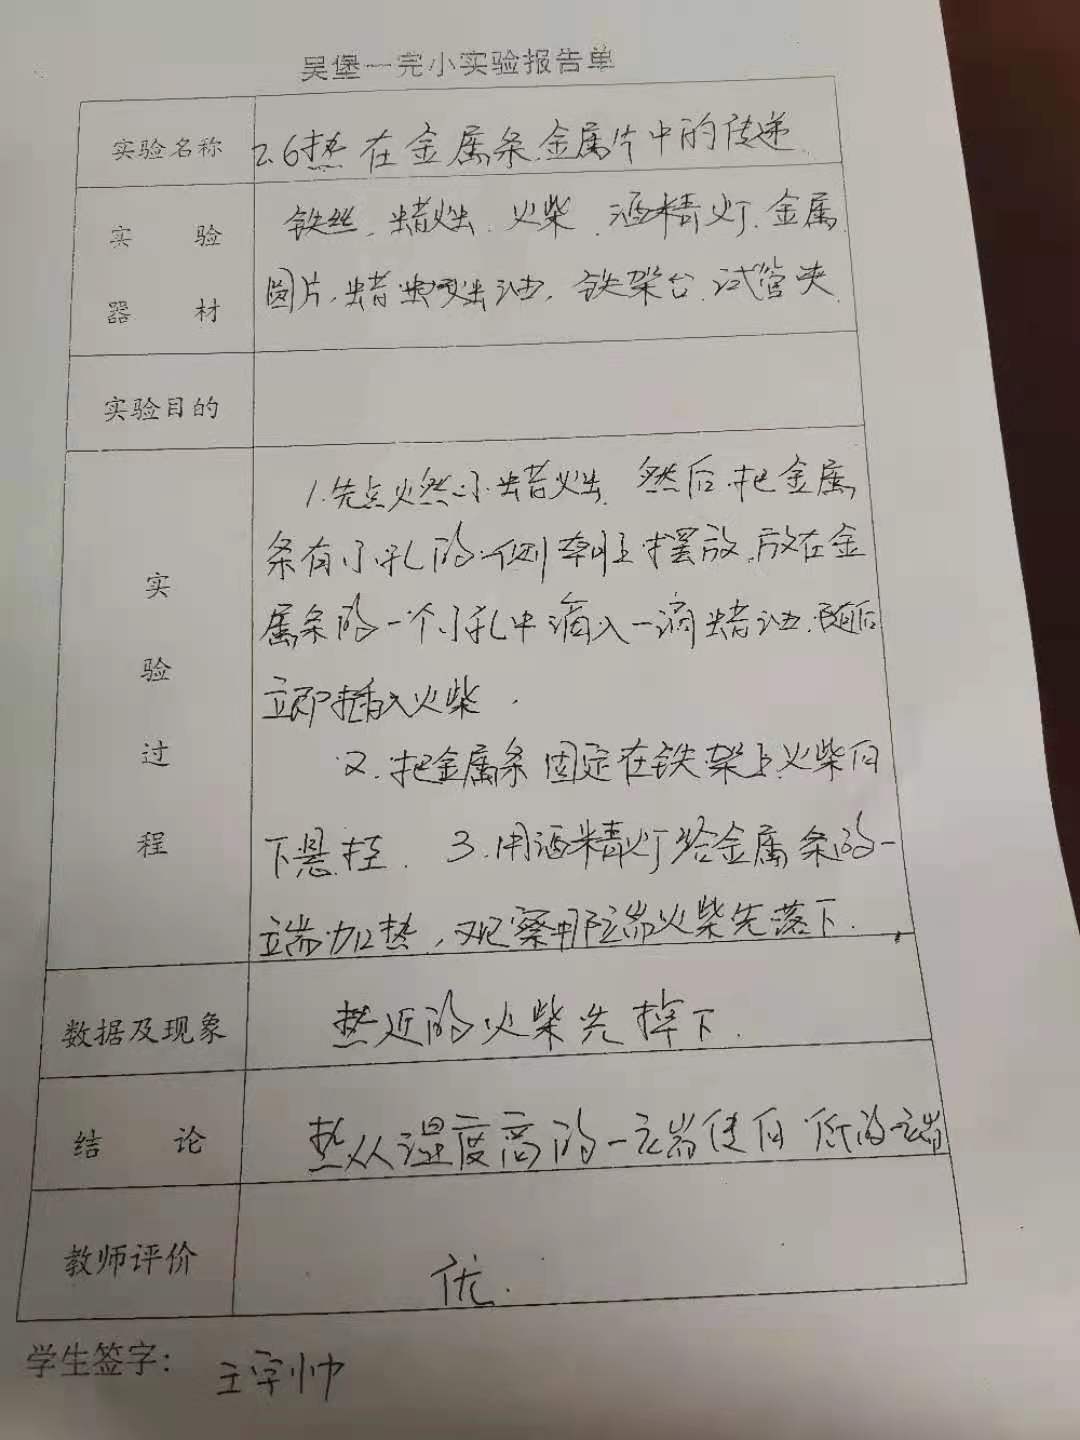 吴堡一完小实验报告单
实验名称 2.6热在金属条金属片中的传递
实验 铁丝、蜡烛、火柴、酒精灯、金属
器材 圆片、蜡油、铁架台、试管夹
实验目的
1.先点燃小蜡烛,然后把金属
条有小孔的一侧朝上摆放,放在金
属条的一个小孔中滴入一滴蜡油,随后
立即插入火柴.
2.把金属条固定在铁架上火柴向
下悬挂. 3.用酒精灯给金属条的一
端加热,观察哪端火柴先落下.
实验过程
数据及现象 热近的火柴先掉下.
结论 热从温度高的一端传向低的一端
教师评价 优.
学生签字: 王宇帅